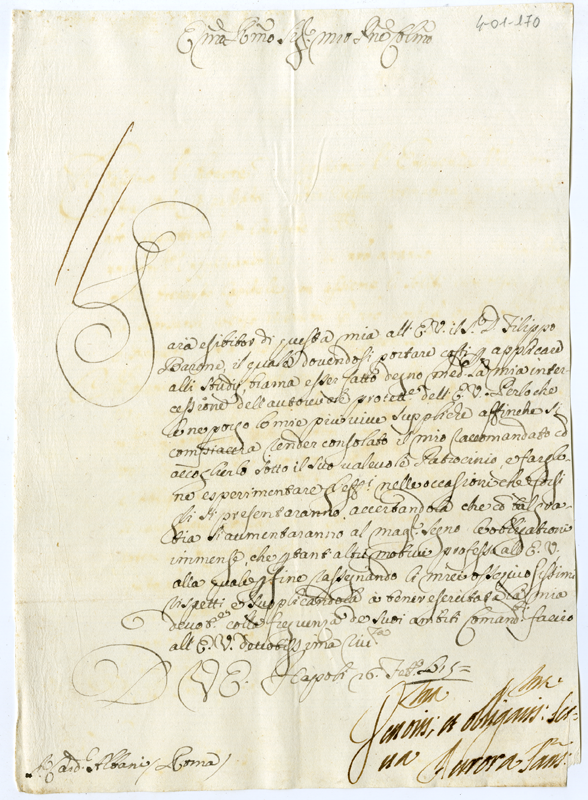 4-01-170
Em.mo Sig.re mio P.ne Col.mo
Sarà esibitor di questa mia all'E.V. il S.r D. Filippo
Barone, il quale dovendosi portare costì p applicare
alli studij, brama esser fatto degno med.te la mia inter-
cessione dell'autorevole protett.e dell'E.V. Perloche
ne porgo le mie più vive suppliche affinche si
compiaccia render consolato il mio raccomandato co
accoglierlo sotto il suo valevole Patrocinio, e farglie
ne esperimentare gl'eff.i nelle occasioni che costì
se li presentaranno, accertandola che co tal gra
tia si aumentaranno al magg.r segno l'obligationi
immense che p tant'altri motivi professo all'E.V.
alla quale p fine rassegnando li miei ossequiosissimi
rispetti e supplicandola à tener esercitata la mia
devot.ne colla frequenza de suoi ambiti comand.ti faccio
all'E.V. devotissima riv.za
D V E. Napoli 16 Feb.o
obligatis. Ser-
va Aurora San:
S. Card. Albani (Roma)